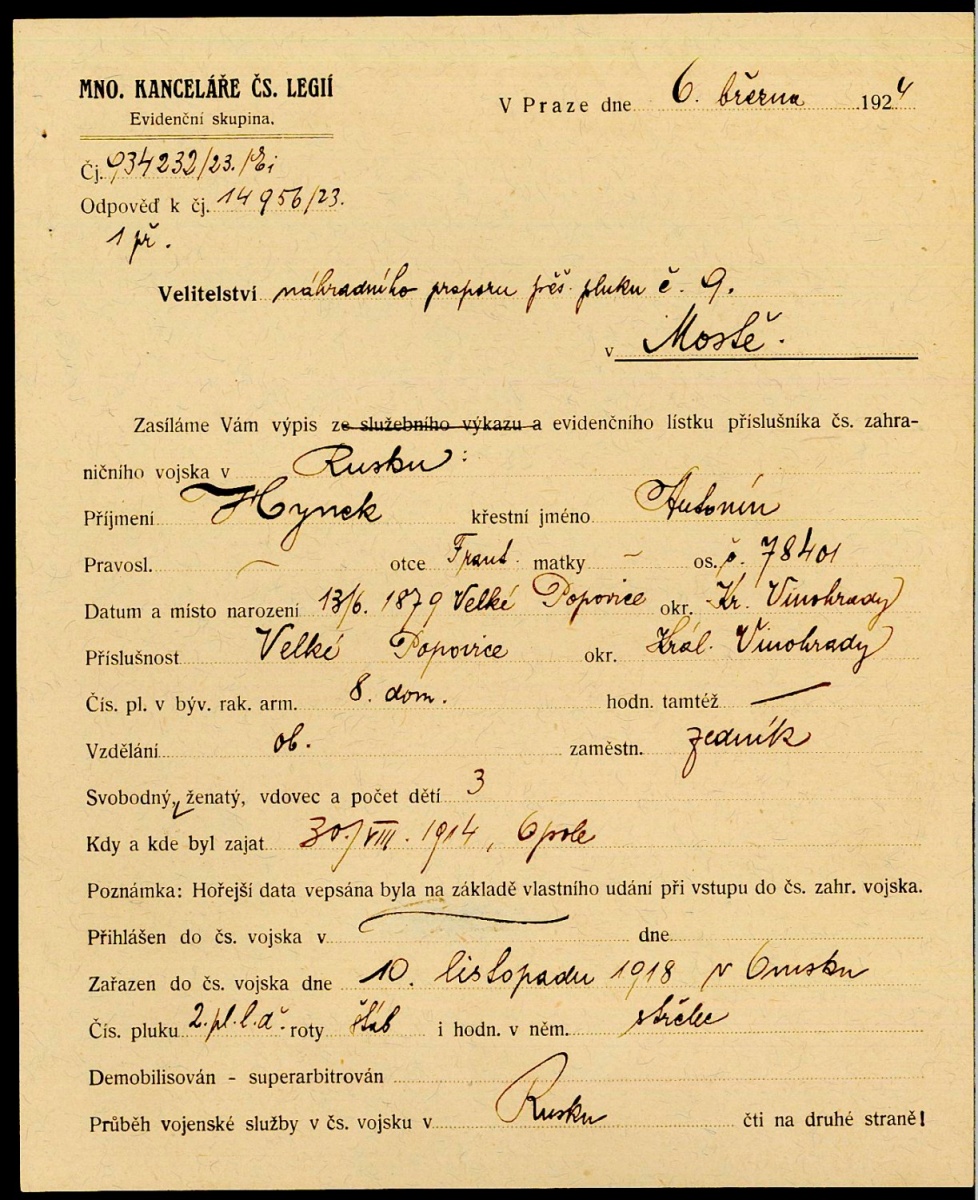 MNO. KANCELÁŘE ČS. LEGIÍ
Evidenční skupina.
V Praze dne 6. března 1924
Čj. 934232/23./Ei
Odpověď k čj. 14956/23.
1 př.
Velitelství náhradního praporu pěš. pluku č. 9.
v Mostě.
Zasíláme Vám výpis ze služebního výkazu a evidenčního lístku příslušníka čs. zahra-
ničního vojska v Rusku:
Příjmení Hynek křestní jméno Antonín
Pravosl. – otce Frant. matky – os. č. 78401
Datum a místo narození 13/6. 1879 Velké Popovice okr. Kr. Vinohrady
Příslušnost Velké Popovice okr. Král. Vinohrady
Čís. pl. v býv. rak. arm. 8. dom. hodn. tamtéž —
Vzdělání ob. zaměstn. zedník
Svobodný, ženatý, vdovec a počet dětí 3
Kdy a kde byl zajat 30./VIII. 1914, Opole
Poznámka: Hořejší data vepsána byla na základě vlastního udání při vstupu do čs. zahr. vojska.
Přihlášen do čs. vojska v — dne
Zařazen do čs. vojska dne 10. listopadu 1918 v Omsku
Čís. pluku 2. pl. l. d. roty štáb i hodn. v něm. střelec
Demobilisován - superarbitrován
Průběh vojenské služby v čs. vojsku v Rusku čti na druhé straně!